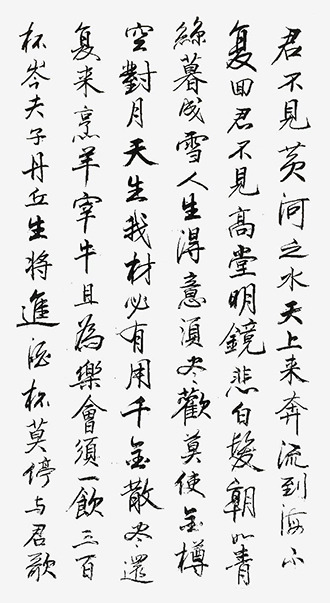 君不見黄河之水天上来奔流到海不
复回君不見高堂明鏡悲白髮朝如青
絲暮成雪人生得意須尽歡莫使金樽
空對月天生我材必有用千金散尽還
复来烹羊宰牛且為樂會須一飲三百
杯岑夫子丹丘生将進酒杯莫停与君歌